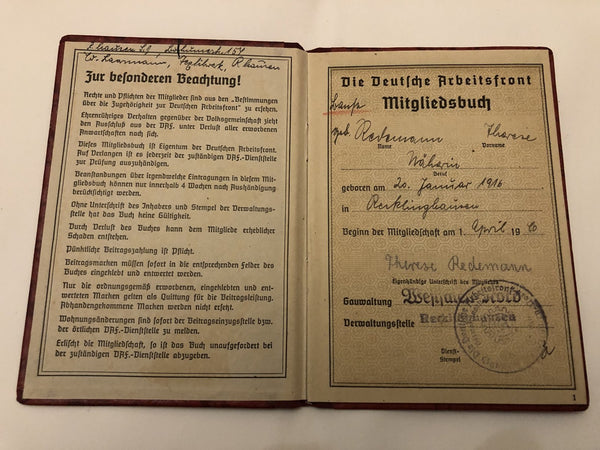 Zur besonderen Beachtung!
Rechte und Pflichten der Mitglieder sind aus den „Bestimmungen
über die Zugehörigkeit zur Deutschen Arbeitsfront" zu ersehen.
Ehrenrühriges Verhalten gegenüber der Volksgemeinschaft zieht
den Ausschluß aus der DAF. unter Verlust aller erworbenen
Anwartschaften nach sich.
Dieses Mitgliedsbuch ist Eigentum der Deutschen Arbeitsfront.
Auf Verlangen ist es jederzeit der zuständigen DAF.-Dienststelle
zur Prüfung auszuhändigen.
Beanstandungen über irgendwelche Eintragungen in diesem Mit-
gliedsbuch können nur innerhalb 4 Wochen nach Aushändigung
berücksichtigt werden.
Ohne Unterschrift des Inhabers und Stempel der Verwaltungs-
stelle hat das Buch keine Gültigkeit.
Durch Verlust des Buches kann dem Mitgliede erheblicher
Schaden entstehen.
Pünktliche Beitragszahlung ist Pflicht.
Beitragsmarken müssen sofort in die entsprechenden Felder des
Buches eingeklebt und entwertet werden.
Nur die ordnungsgemäß erworbenen, eingeklebten und ent-
werteten Marken gelten als Quittung für die Beitragsleistung.
Abhandengekommene Marken werden nicht ersetzt.
Wohnungsänderungen sind sofort der Beitragseinzugsstelle bzw.
der örtlichen DAF.-Dienststelle zu melden.
Erlischt die Mitgliedschaft, so ist das Buch unaufgefordert bei
der zuständigen DAF.-Dienststelle abzugeben.
Die Deutsche Arbeitsfront
Mitgliedsbuch
geb. Redemann Therese
Name Vorname
Näherin
Beruf
geboren am 20. Januar 1916
in Recklinghausen
Beginn der Mitgliedschaft am 1. April 19
Therese Redemann
Eigenhändige Unterschrift des Mitglieds
Gauwaltung Westfalen-Nord
Verwaltungsstelle Recklinghausen
Dienst-
Stempel
1